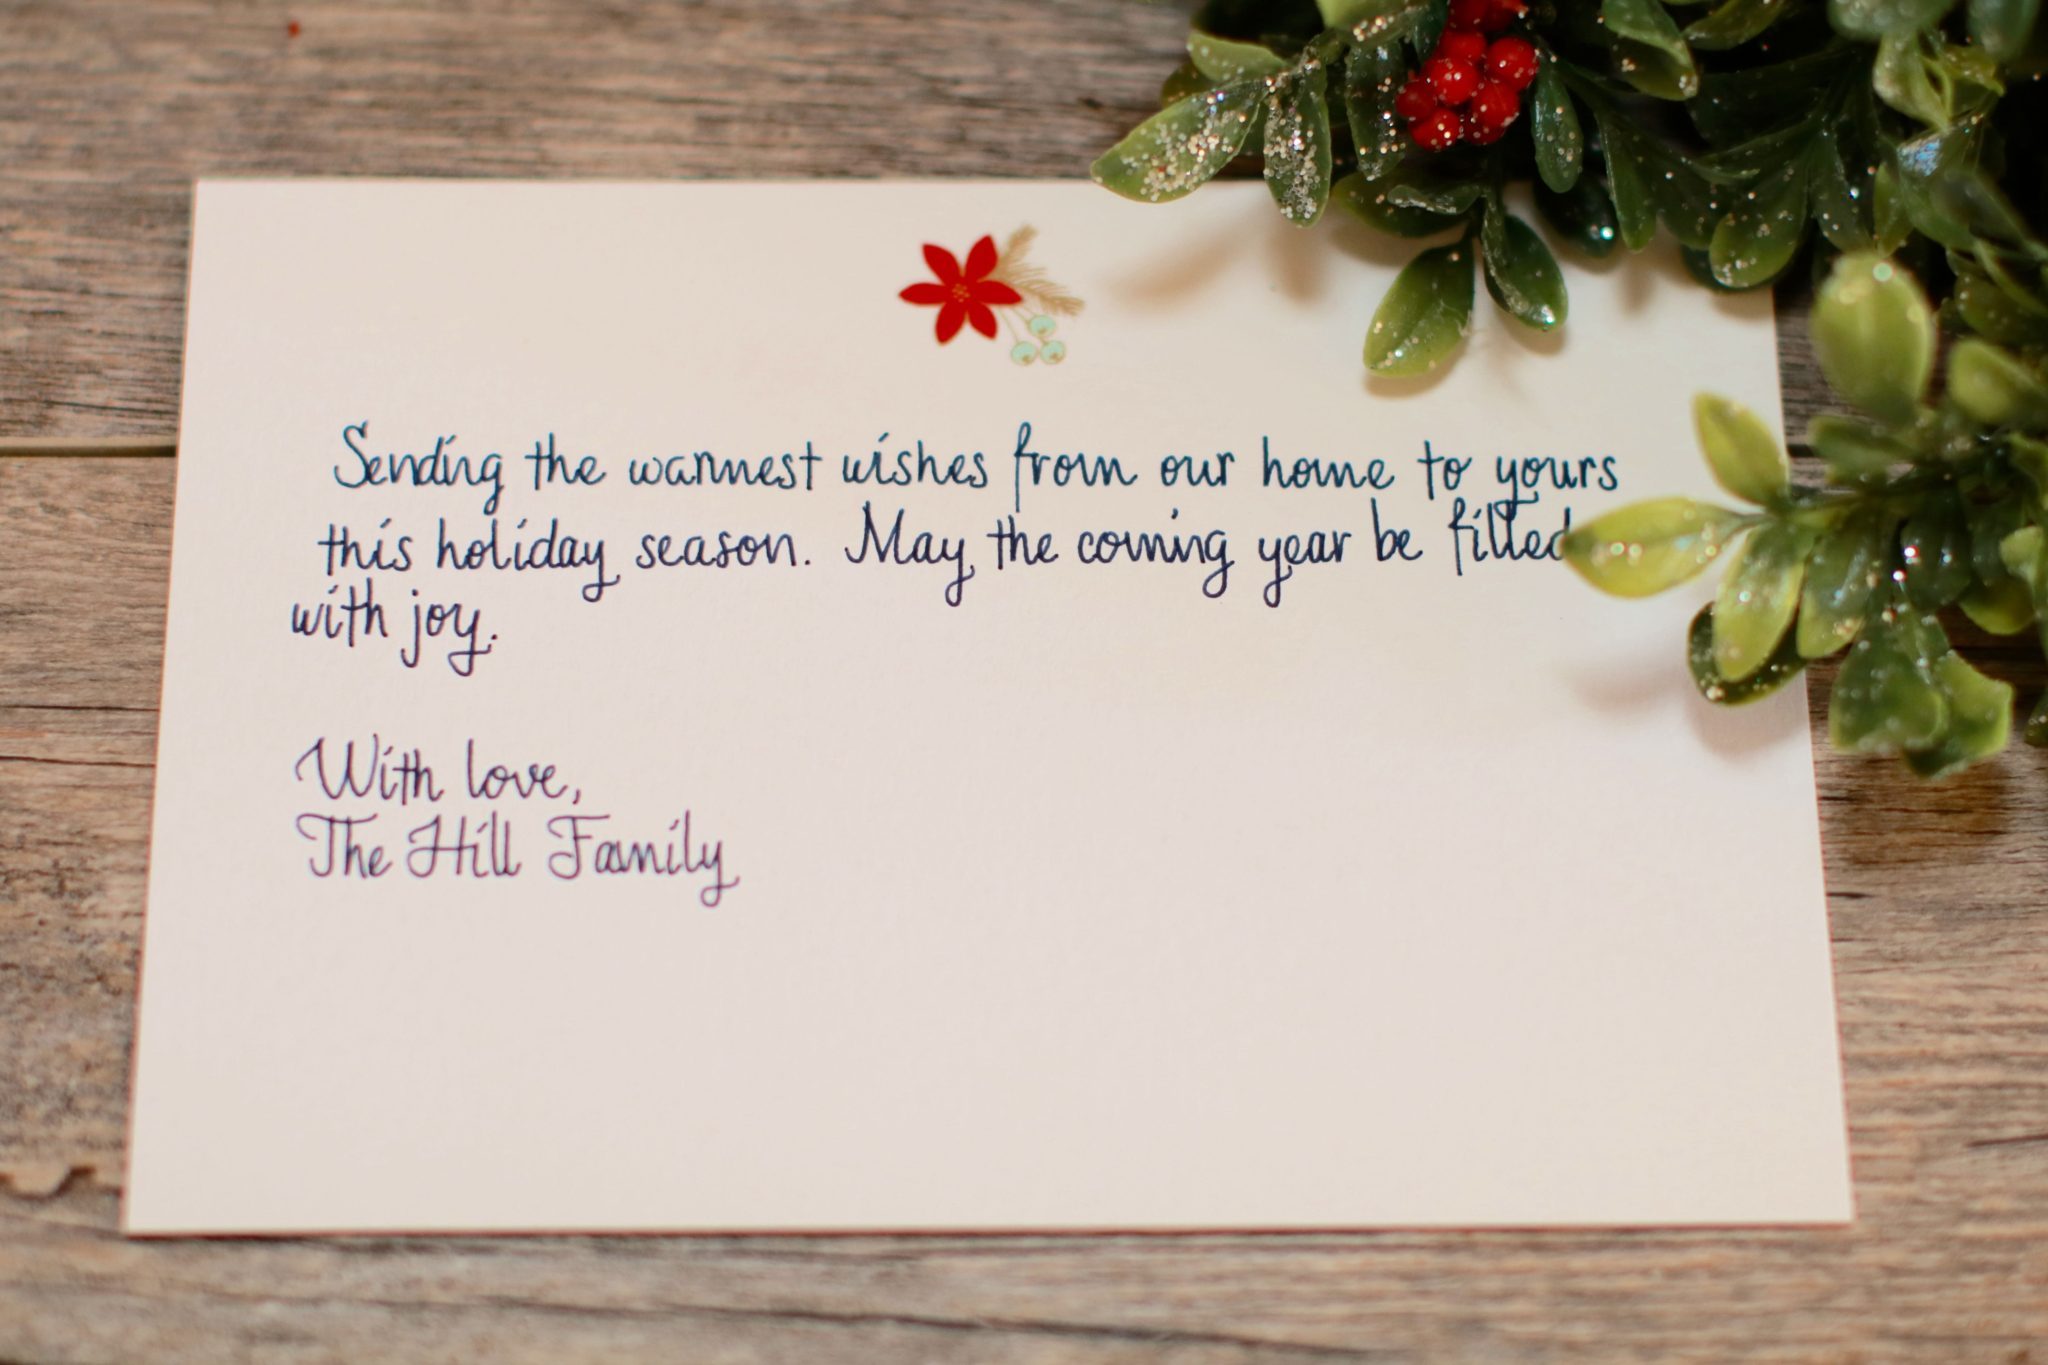 Sending the warmest wishes from our home to yours
this holiday season. May the coming year be filled
with joy.
With love,
The Hill Family